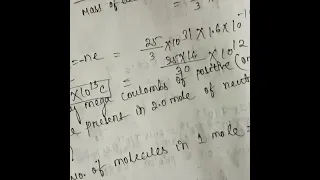 Mass of
= -ne = 25/3 × 10^31 × 1.6 × 10^-1
25×16/30 × 10^12
×10^13 C
mega coulombs of positive (or
present in 2.0 mole of neut
No. of molecules in 1 mole =